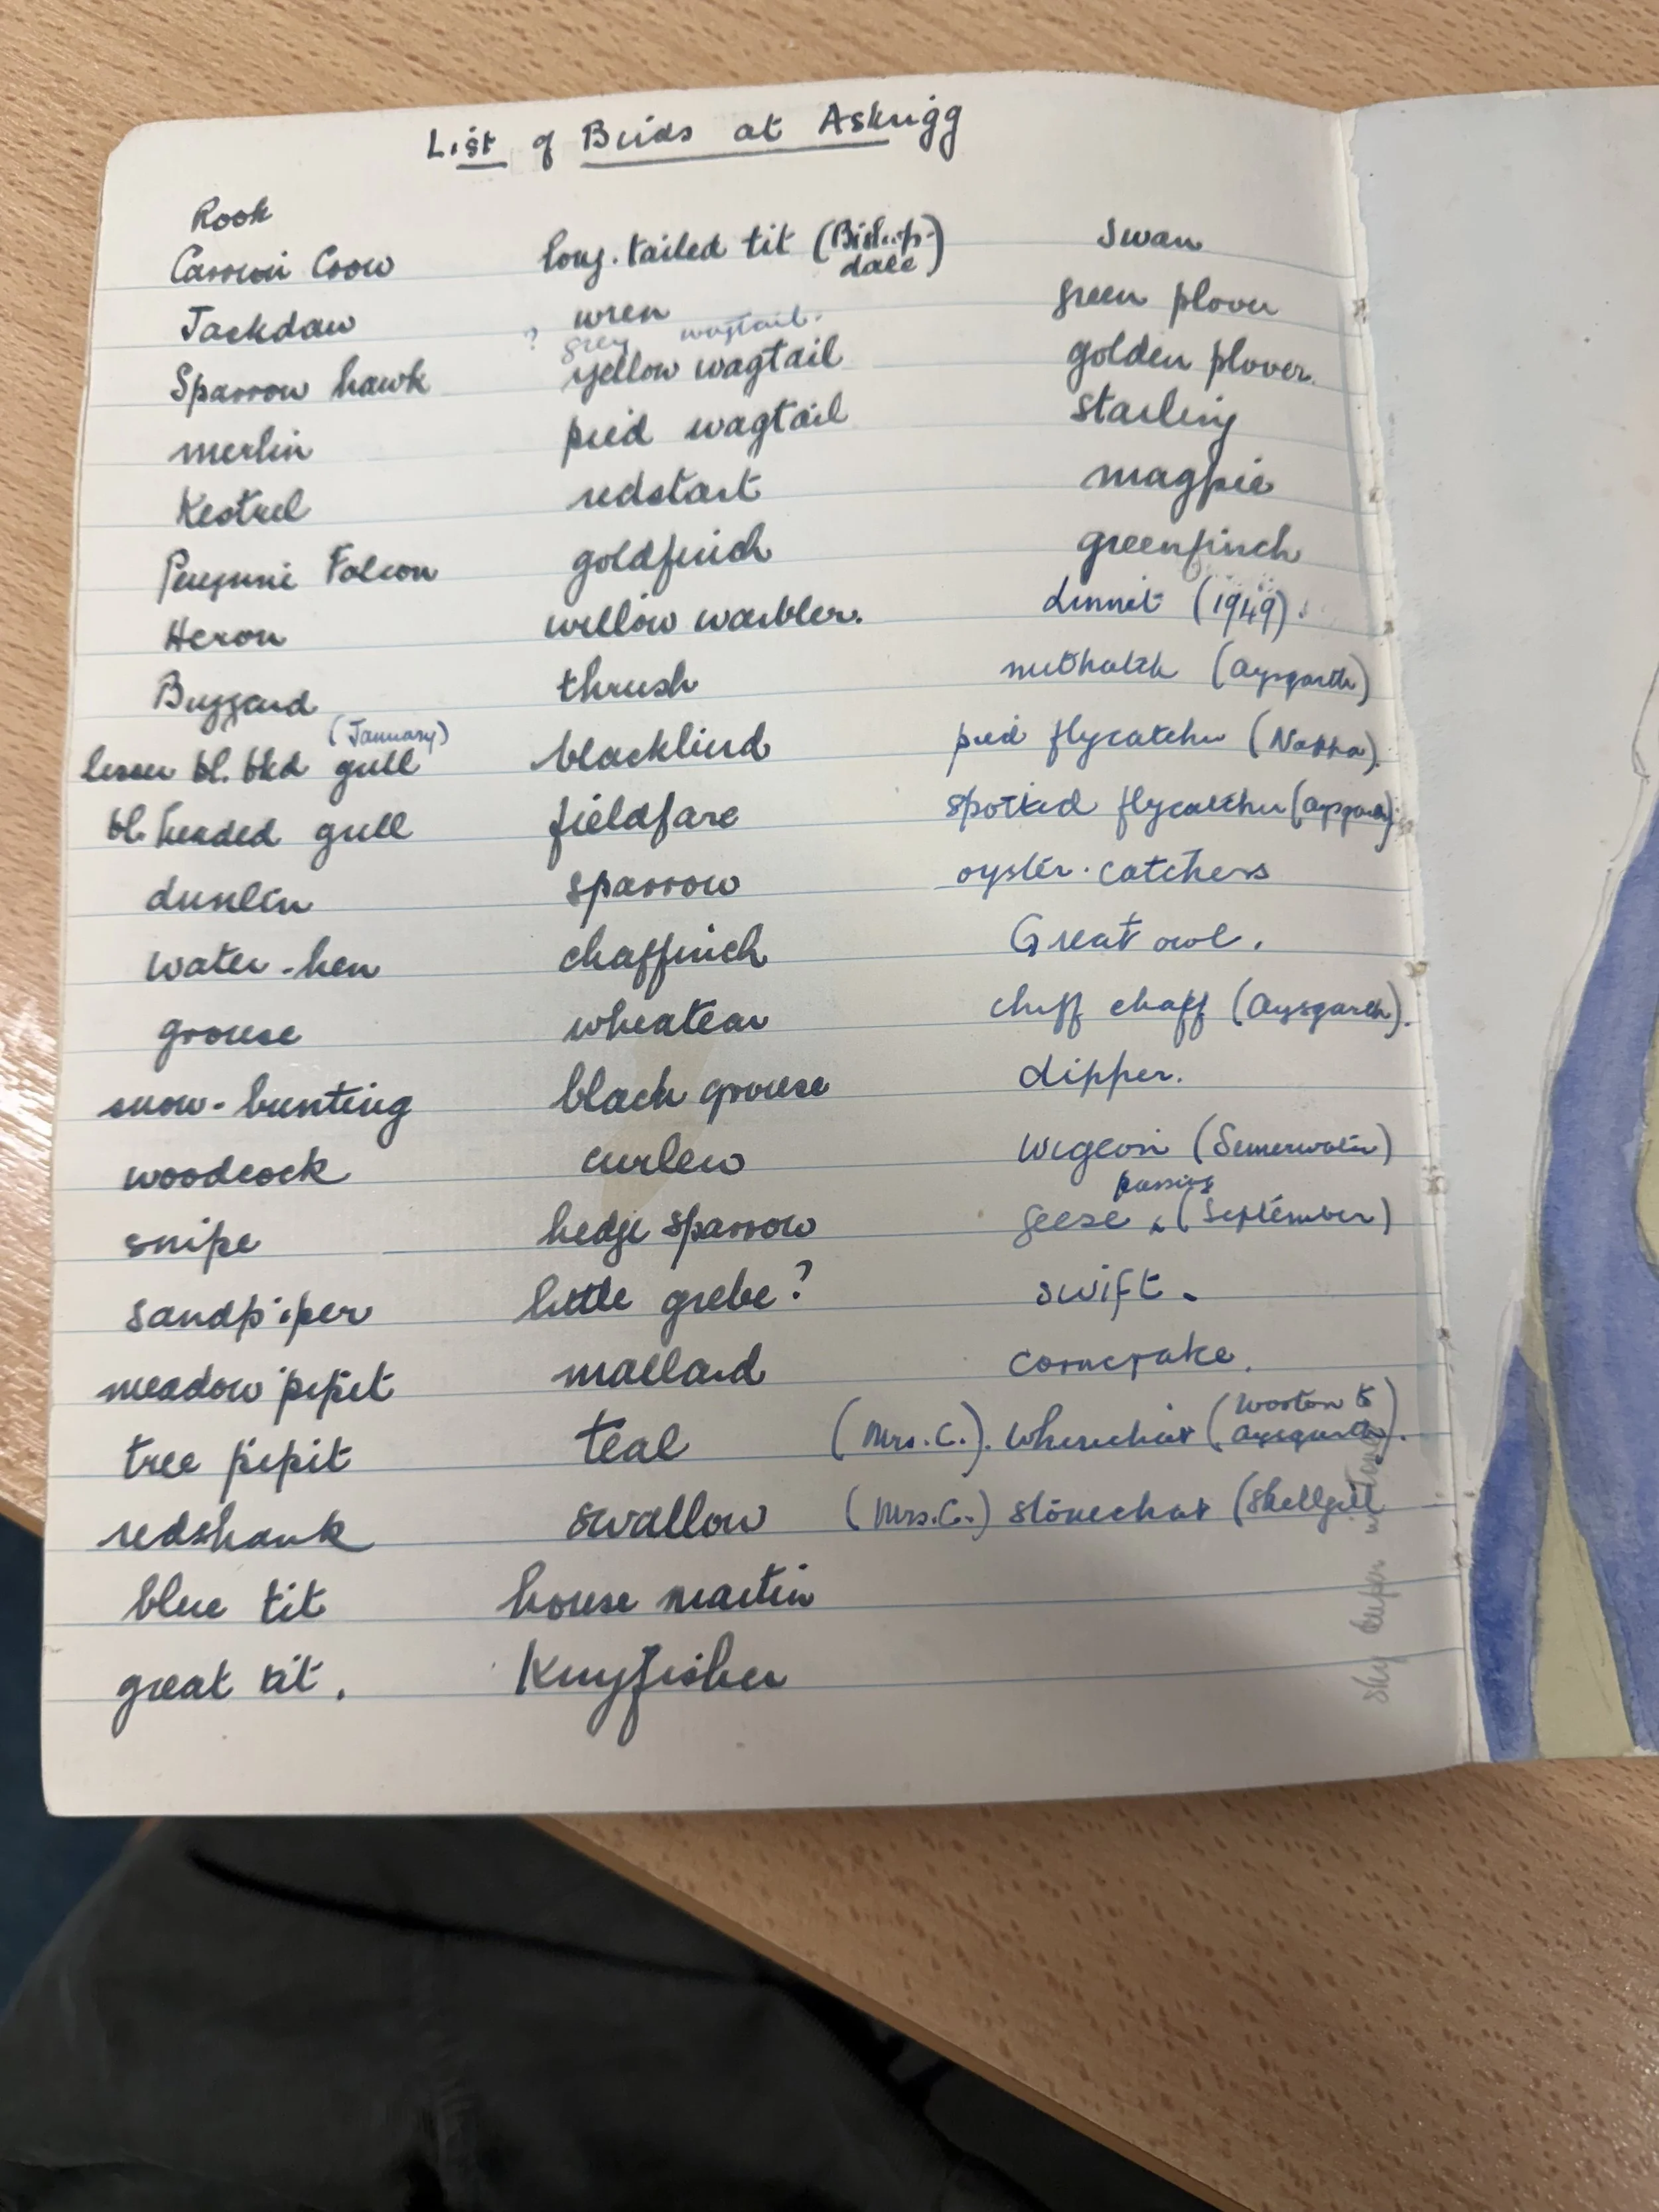 List of Birds at Askrigg
Rook
Carrion Crow
Jackdaw
Sparrow hawk
merlin
Kestrel
Peregrine Falcon
Heron
Buzzard
(January)
lesser bl. bkd gull
bl. headed gull
dunlin
water-hen
grouse
snow-bunting
woodcock
snipe
sandpiper
meadow pipit
tree pipit
redshank
blue tit
great tit.
long-tailed tit (Bishop-
dale)
wren
? grey wagtail.
yellow wagtail
pied wagtail
redstart
goldfinch
willow warbler.
thrush
blackbird
fieldfare
sparrow
chaffinch
wheatear
black grouse
curlew
hedge sparrow
little grebe?
mallard
teal
swallow
house martin
Kingfisher
swan
green plover
golden plover.
starling
magpie
greenfinch
Linnet (1949).
nuthatch (Aysgarth)
pied flycatcher (Nappa).
spotted flycatcher (Aysgarth).
oyster-catchers
Great owl.
chiff chaff (Aysgarth).
dipper.
wigeon (Semerwater)
passing
geese (September)
swift.
corncrake.
(Mrs. C.). Whinchat (Worton to
Aysgarth).
(Mrs. C.) stonechat (Skellgill
sky